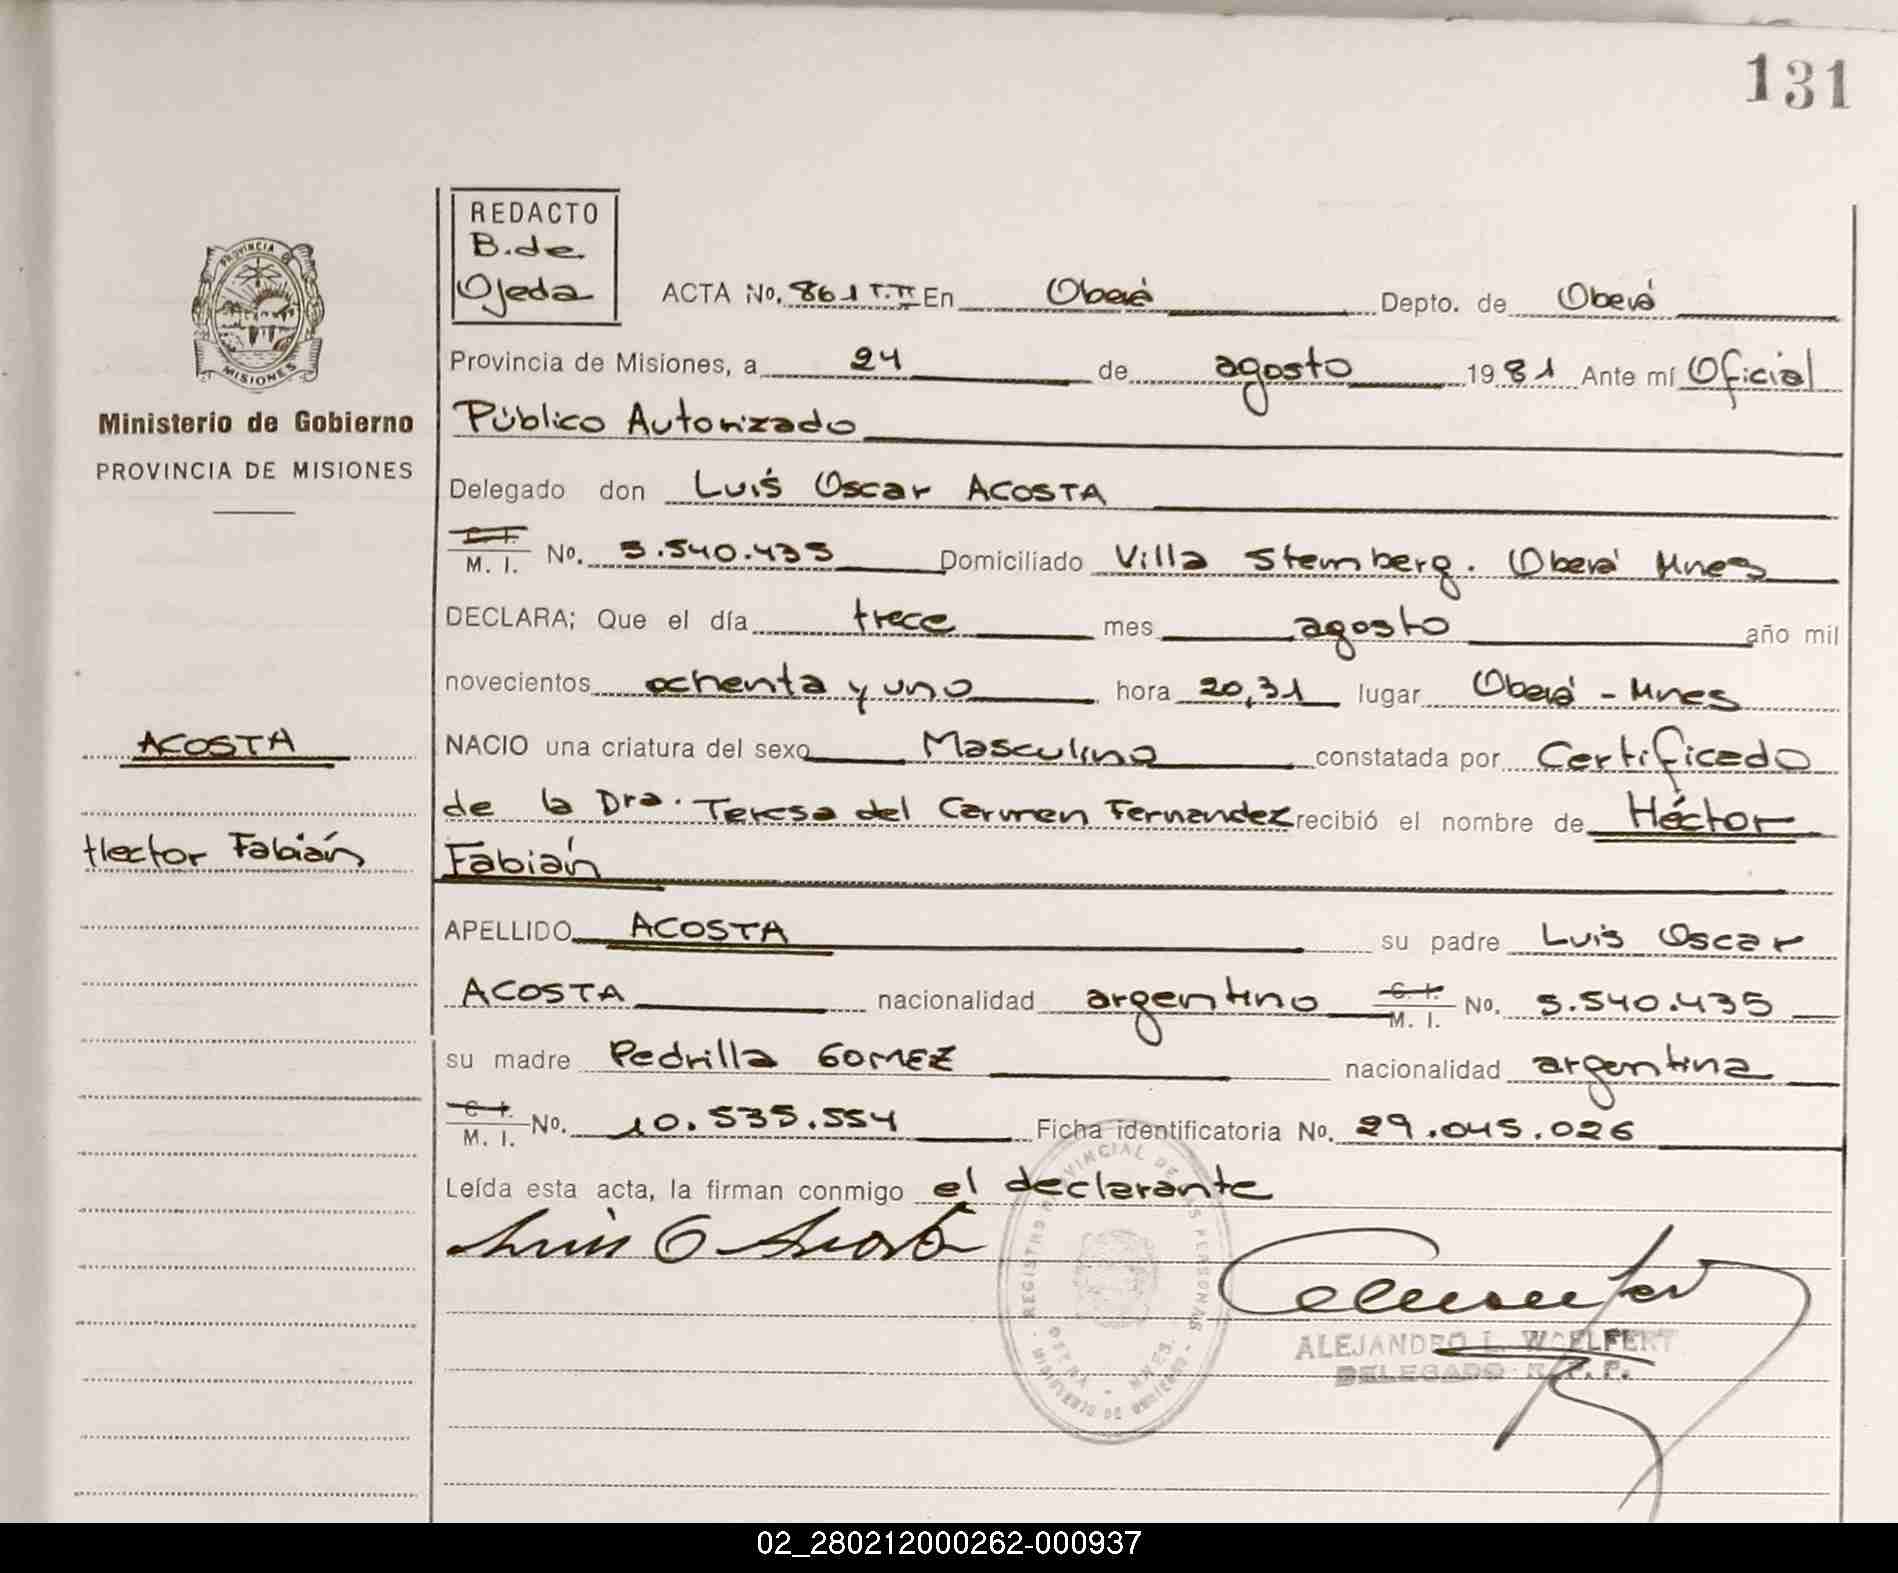 131
REDACTO
B. de
Ojeda
PROVINCIA DE
MISIONES
Ministerio de Gobierno
PROVINCIA DE MISIONES
ACTA No. 861 T.II En Oberá Depto. de Oberá
Provincia de Misiones, a 24 de agosto 1981 Ante mí Oficial
Público Autorizado
Delegado don Luis Oscar ACOSTA
C. I.
M. I. No. 5.540.435 Domiciliado Villa Stemberg. Oberá Mnes
DECLARA; Que el día trece mes agosto año mil
novecientos ochenta y uno hora 20,31 lugar Oberá - Mnes
ACOSTA
NACIO una criatura del sexo Masculino constatada por Certificado
de la Dra. Teresa del Carmen Fernandez recibió el nombre de Héctor
Hector Fabián
Fabián
APELLIDO ACOSTA su padre Luis Oscar
ACOSTA nacionalidad argentino C. I. M. I. No. 5.540.435
su madre Pedrilla GOMEZ nacionalidad argentina
C. I.
M. I. No. 10.535.554 Ficha identificatoria No. 29.045.026
Leída esta acta, la firman conmigo el declarante
Luis O Acosta
REGISTRO PROVINCIAL DE LAS PERSONAS
OBERA - MNES.
MINISTERIO DE GOBIERNO
ALEJANDRO L. WOELFERT
DELEGADO R. P. P.
02_280212000262-000937